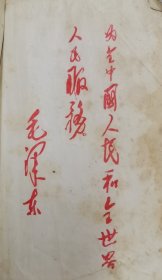 为全中國人民和全世界
人民服務
毛澤东